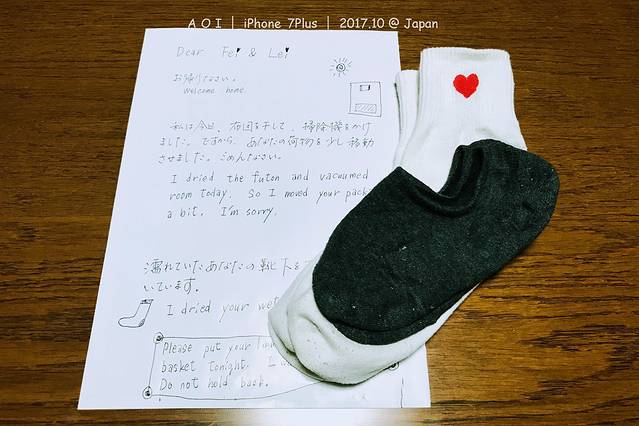 A O I | iPhone 7Plus | 2017.10 @ Japan
Dear Fei & Lei
お帰りなさい。
Welcome home
私は今日、布団を干して、掃除機をかけ
ました。ですから、あなたの荷物を少し移動
させました。ごめんなさい。
I dried the futon and vacuumed
room today. So I moved your pack
a bit. I'm sorry.
濡れていたあなたの靴下を
いています。
I dried your wet
Please put your
basket tonight. I
Do not hold back.